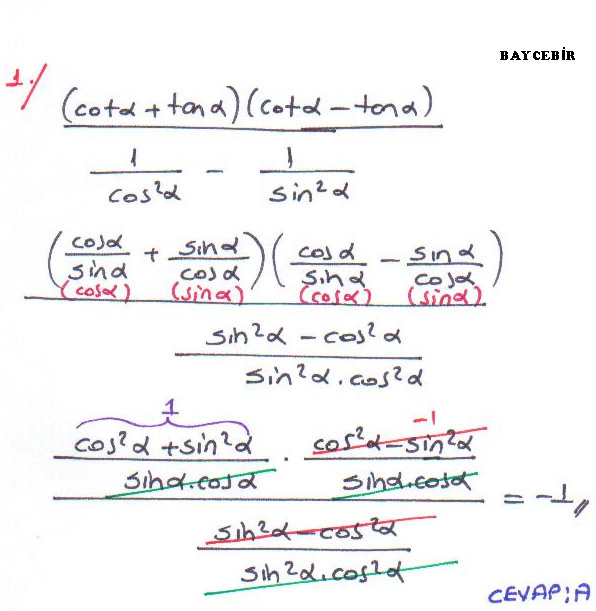 BAYCEBİR
1./
(cotα + tanα)(cotα - tanα)
1/cos²α - 1/sin²α
(cosα/sinα + sinα/cosα)(cosα/sinα - sinα/cosα)
(cosα) (sinα) (cosα) (sinα)
sin²α - cos²α
sin²α.cos²α
1 -1
cos²α + sin²α . cos²α - sin²α
sinα.cosα sinα.cosα
= -1,,
sin²α - cos²α
sin²α.cos²α
CEVAP:A